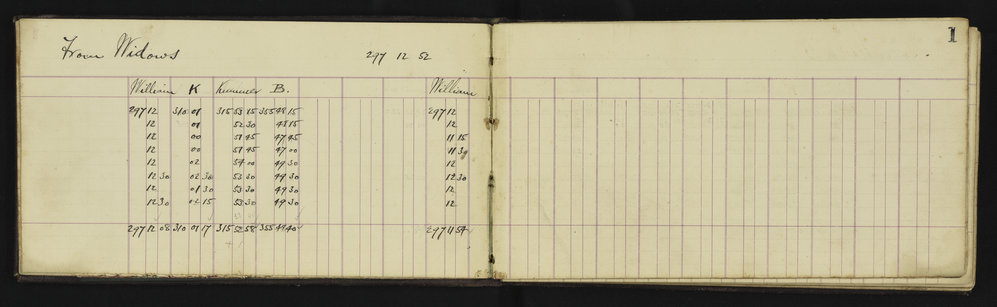 1
From Widows 297 12 52
William K Kummer B. William
297 12 310 01 315 53 15 355 48 15 297 12
12 01 52 30 48 15 12
12 00 51 45 47 45 11 15
12 00 51 45 47 00 11 30
12 02 54 00 49 30 12
12 30 02 30 53 30 49 30 12 30
12 01 30 53 30 49 30 12
12 30 02 15 53 30 49 30 12
297 12 08 310 01 17 315 52 58 355 48 40 297 11 54